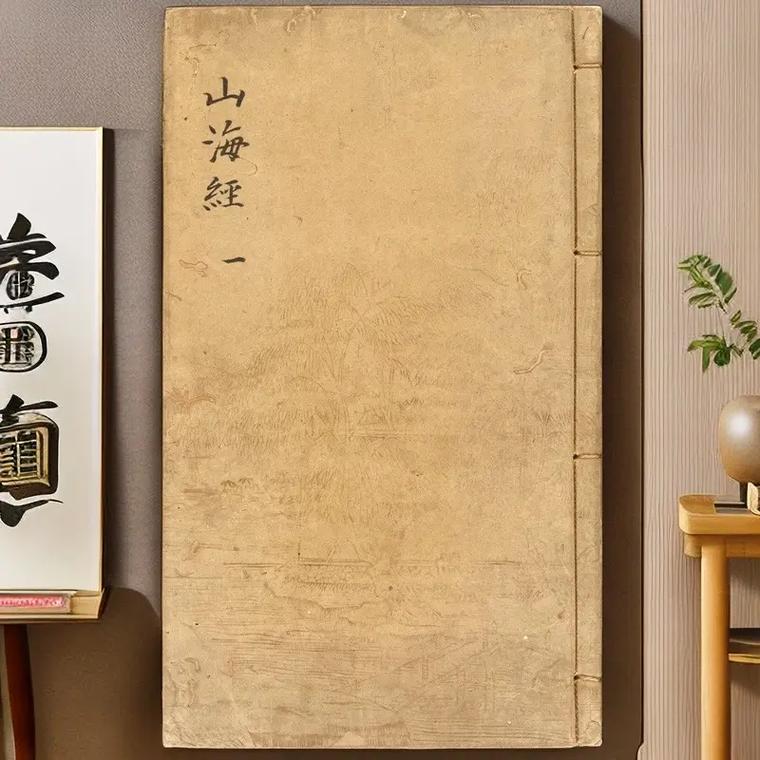 山海經 一